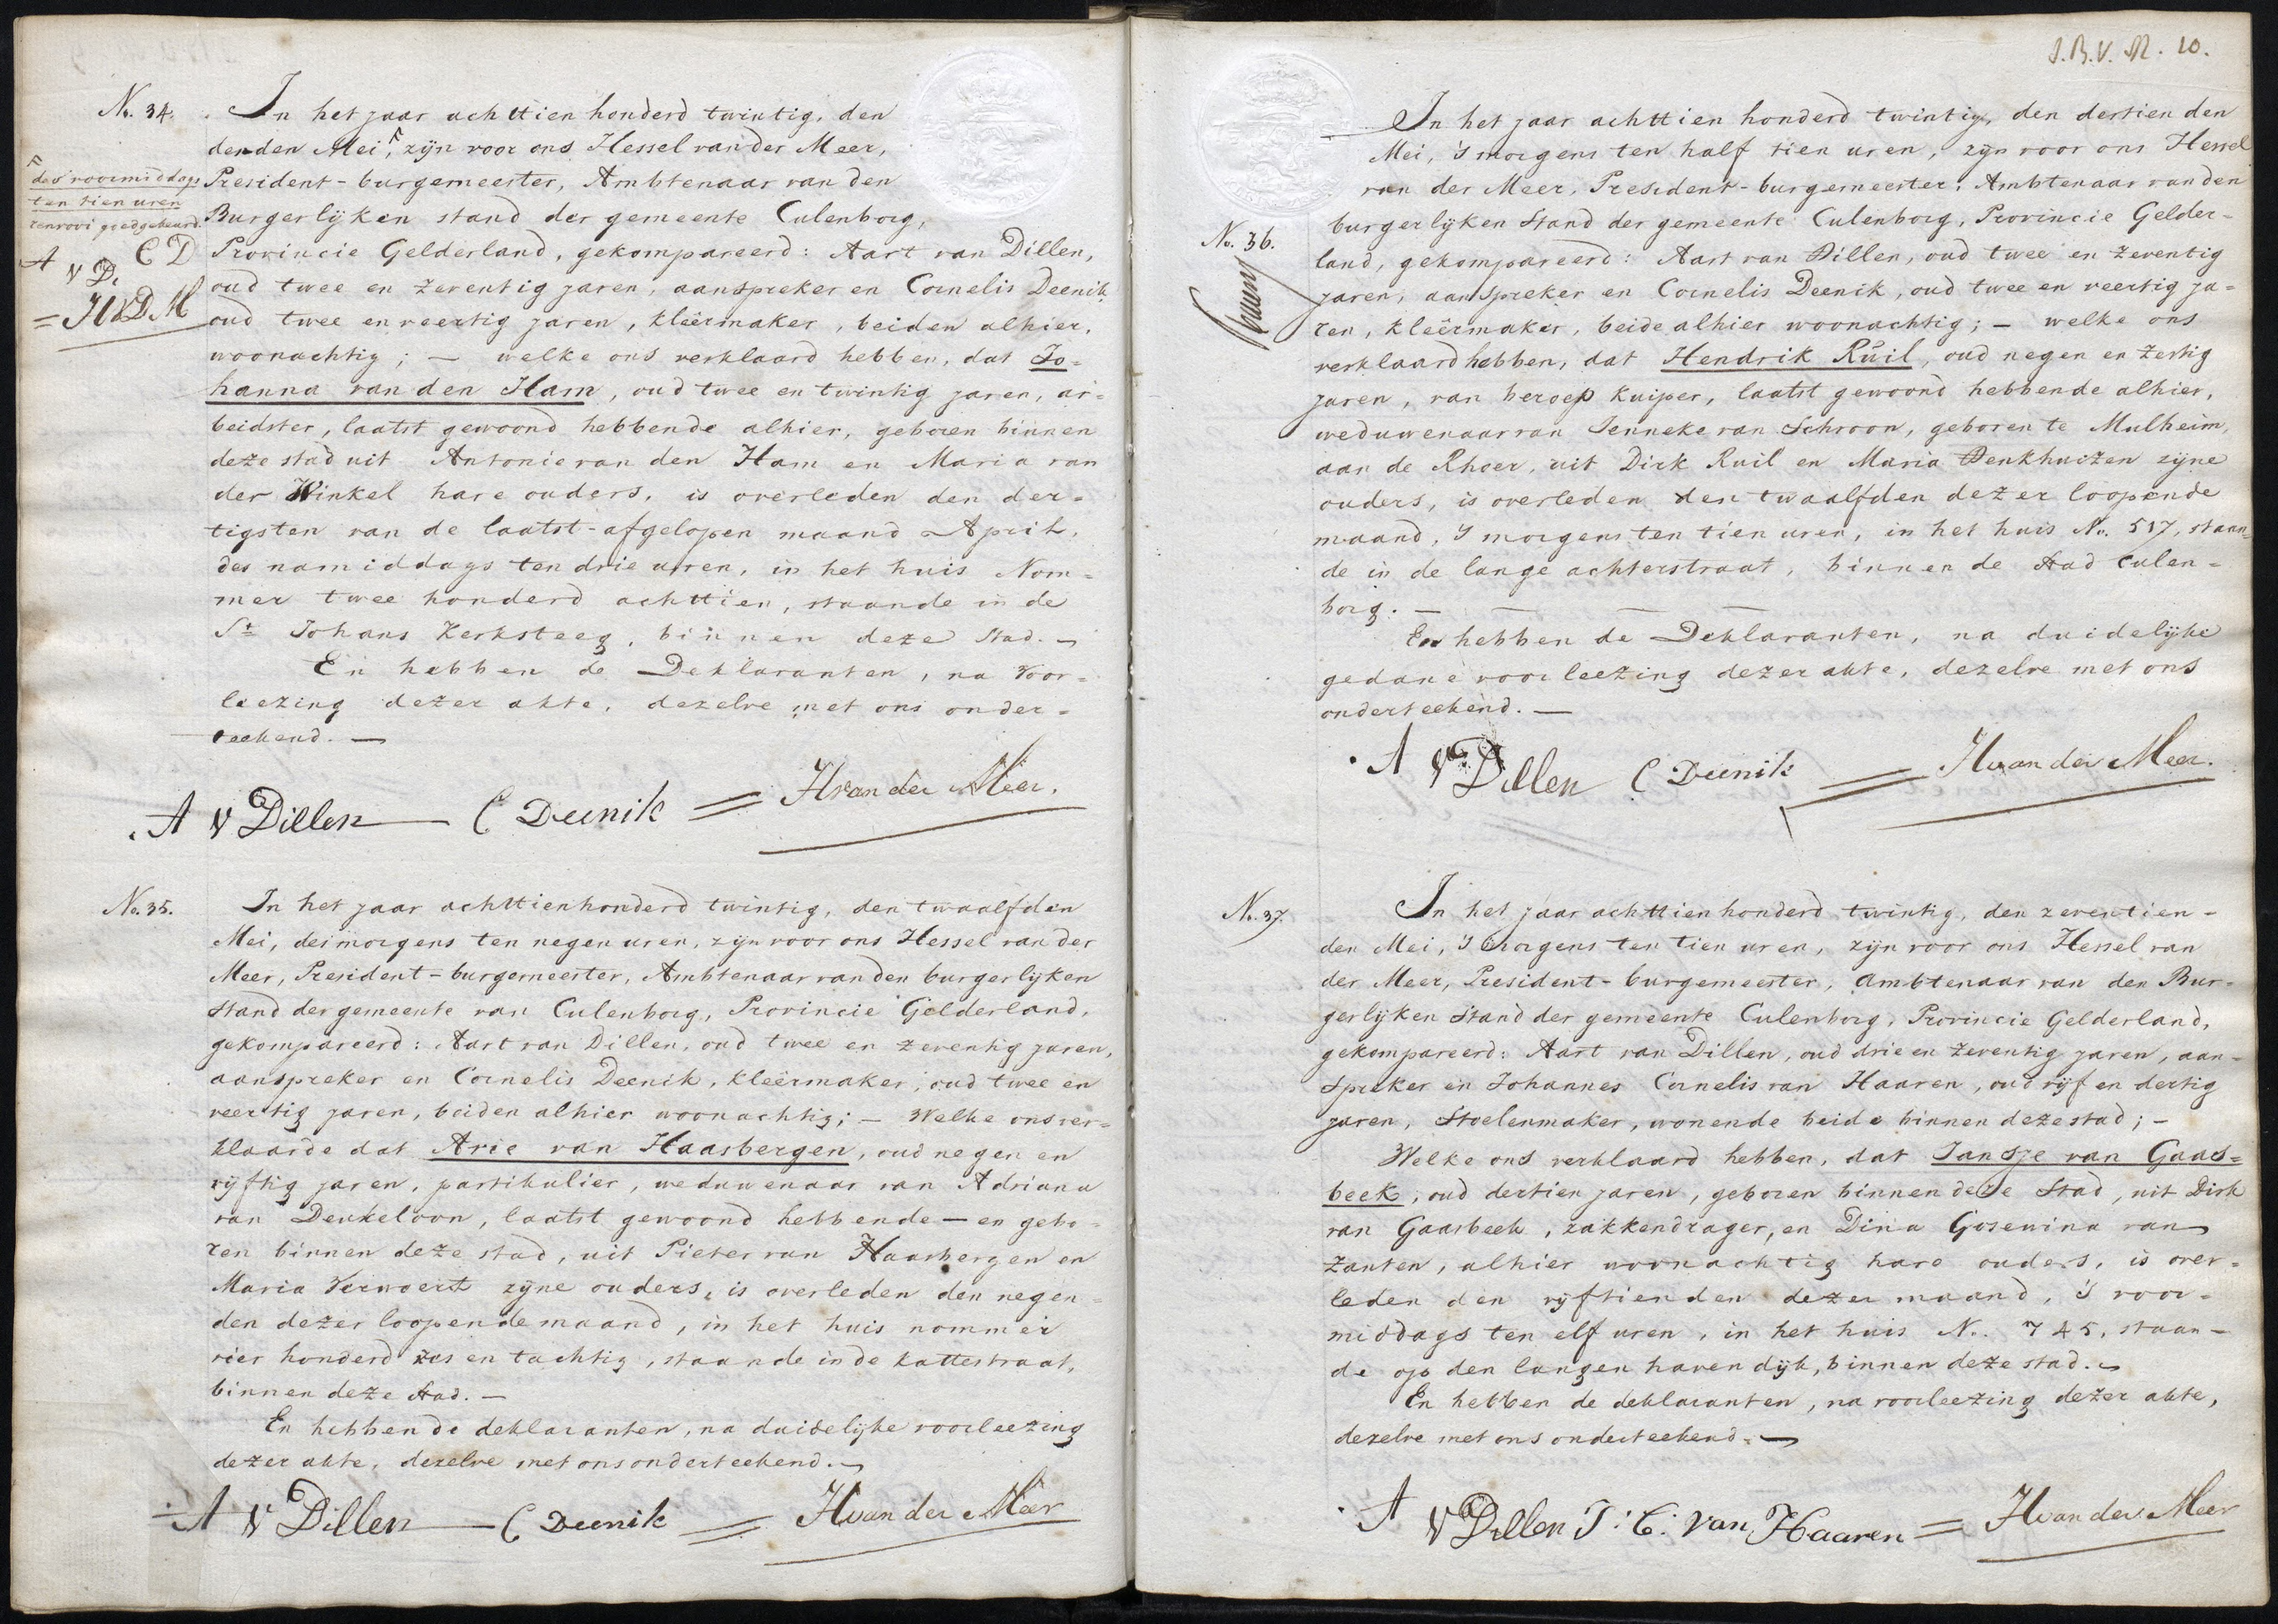 No. 34.
In het jaar achttien honderd twintig, den
derden Mei, zijn voor ons Hessel van der Meer,
des voormiddags
ten tien uren
renvooi goedgekeurd.
A v D. C D
= HVDM
President-burgemeester, Ambtenaar van den
Burgerlijken stand der gemeente Culenborg,
Provincie Gelderland, gekompareerd: Aart van Dillen,
oud twee en zeventig jaren, aanspreker en Cornelis Deenik,
oud twee en veertig jaren, kleêrmaker, beiden alhier,
woonachtig; — welke ons verklaard hebben, dat Jo=
hanna van den Ham, oud twee en twintig jaren, ar=
beidster, laatst gewoond hebbende alhier, geboren binnen
deze stad uit Antonie van den Ham en Maria van
der Winkel hare ouders, is overleden den der=
tigsten van de laatst-afgelopen maand April,
des namiddags ten drie uren, in het huis Nom=
mer twee honderd achttien, staande in de
St Johans Kerksteeg, binnen deze stad. —
En hebben de Deklaranten, na voor=
leezing dezer akte, dezelve met ons onder=
teekend. —
A v Dillen — C Deenik = H van der Meer.
No. 35.
In het jaar achttienhonderd twintig, den twaalfden
Mei, des morgens ten negen uren, zijn voor ons Hessel van der
Meer, President-burgemeester, Ambtenaar van den burgerlijken
stand der gemeente van Culenborg, Provincie Gelderland,
gekompareerd: Aart van Dillen, oud twee en zeventig jaren,
aanspreker en Cornelis Deenik, kleêrmaker, oud twee en
veertig jaren, beiden alhier woonachtig; — Welke ons ver=
klaarde dat Arie van Haasbergen, oud negen en
vijftig jaren, partikulier, weduwenaar van Adriana
van Deukeloon, laatst gewoond hebbende — en gebo=
ren binnen deze stad, uit Pieter van Haasbergen en
Maria Verwoert zijne ouders, is overleden den negen=
den dezer loopende maand, in het huis nommer
vier honderd zes en tachtig, staande in de kattestraat,
binnen deze stad. —
En hebben de deklaranten, na duidelijke voorleezing
dezer akte, dezelve met ons onderteekend. —
A v Dillen — C Deenik = H van der Meer
J.B.V.N. 10.
No. 36.
In het jaar achttien honderd twintig, den dertienden
Mei, 's morgens ten half tien uren, zijn voor ons Hessel
van der Meer, President-burgemeester, Ambtenaar van den
burgerlijken Stand der gemeente Culenborg, Provincie Gelder=
land, gekompareerd: Aart van Dillen, oud twee en zeventig
jaren, aanspreker en Cornelis Deenik, oud twee en veertig ja=
ren, kleêrmaker, beide alhier woonachtig; — welke ons
verklaard hebben, dat Hendrik Ruil, oud negen en zestig
jaren, van beroep kuiper, laatst gewoond hebbende alhier,
weduwenaar van Jenneke van Schroon, geboren te Mulheim,
aan de Rhoer, uit Dirk Ruil en Maria Denkhuizen zijne
ouders, is overleden den twaalfden dezer loopende
maand, 's morgens ten tien uren, in het huis No. 517, staan=
de in de lange achterstraat, binnen de stad Culen=
borg. —
En hebben de Deklaranten, na duidelijke
gedane voorleezing dezer akte, dezelve met ons
onderteekend. —
A v Dillen C Deenik = H van der Meer.
No. 37.
In het jaar achttienhonderd twintig, den zeventien=
den Mei, 's morgens ten tien uren, zijn voor ons Hessel van
der Meer, President-burgemeester, Ambtenaar van den Bur=
gerlijken Stand der gemeente Culenborg, Provincie Gelderland,
gekompareerd: Aart van Dillen, oud drie en zeventig jaren, aan=
spreker en Johannes Cornelis van Haaren, oud vijf en dertig
jaren, Stoelenmaker, wonende beide binnen deze stad; —
Welke ons verklaard hebben, dat Jansje van Gaas=
beek, oud dertien jaren, geboren binnen deze Stad, uit Dirk
van Gaasbeek, zakkendrager, en Dina Gosewina van
Zanten, alhier woonachtig hare ouders, is over=
leden den vijftienden dezer maand, 's voor=
middags ten elf uren, in het huis No. 745, staan=
de op den langen havendijk, binnen deze stad. —
En hebben de deklaranten, na voorleezing dezer akte,
dezelve met ons onderteekend. —
A v Dillen J: C: van Haaren = H van der Meer